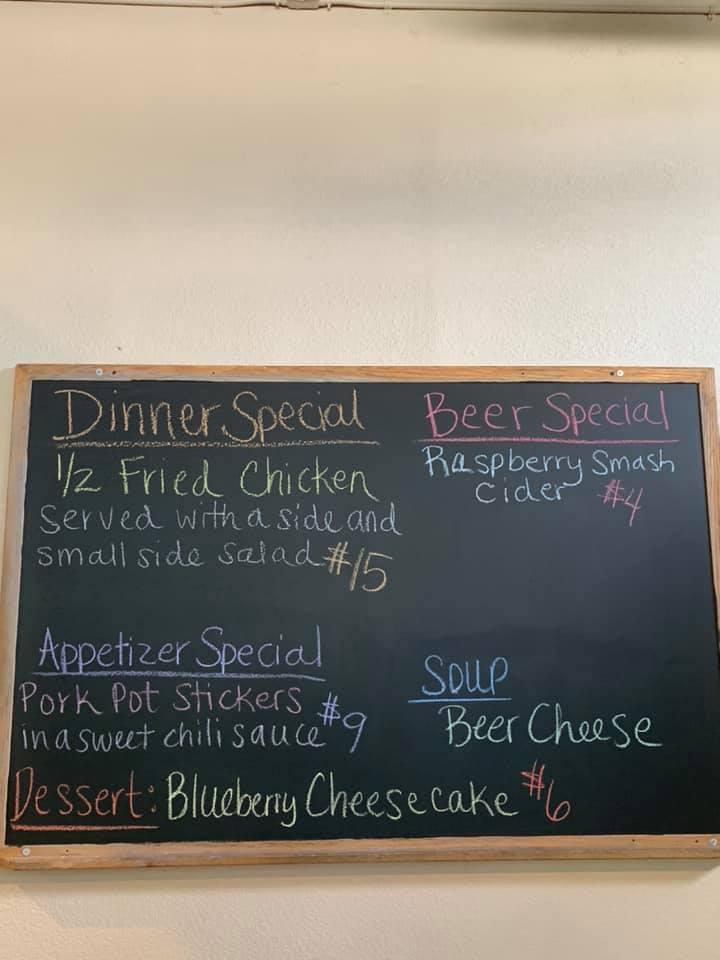 Dinner Special
1/2 Fried Chicken
served with a side and
small side salad $15
Beer Special
Raspberry Smash
Cider $4
Appetizer Special
Pork Pot Stickers
in a sweet chili sauce $9
Soup
Beer Cheese
Dessert: Blueberry Cheesecake $6